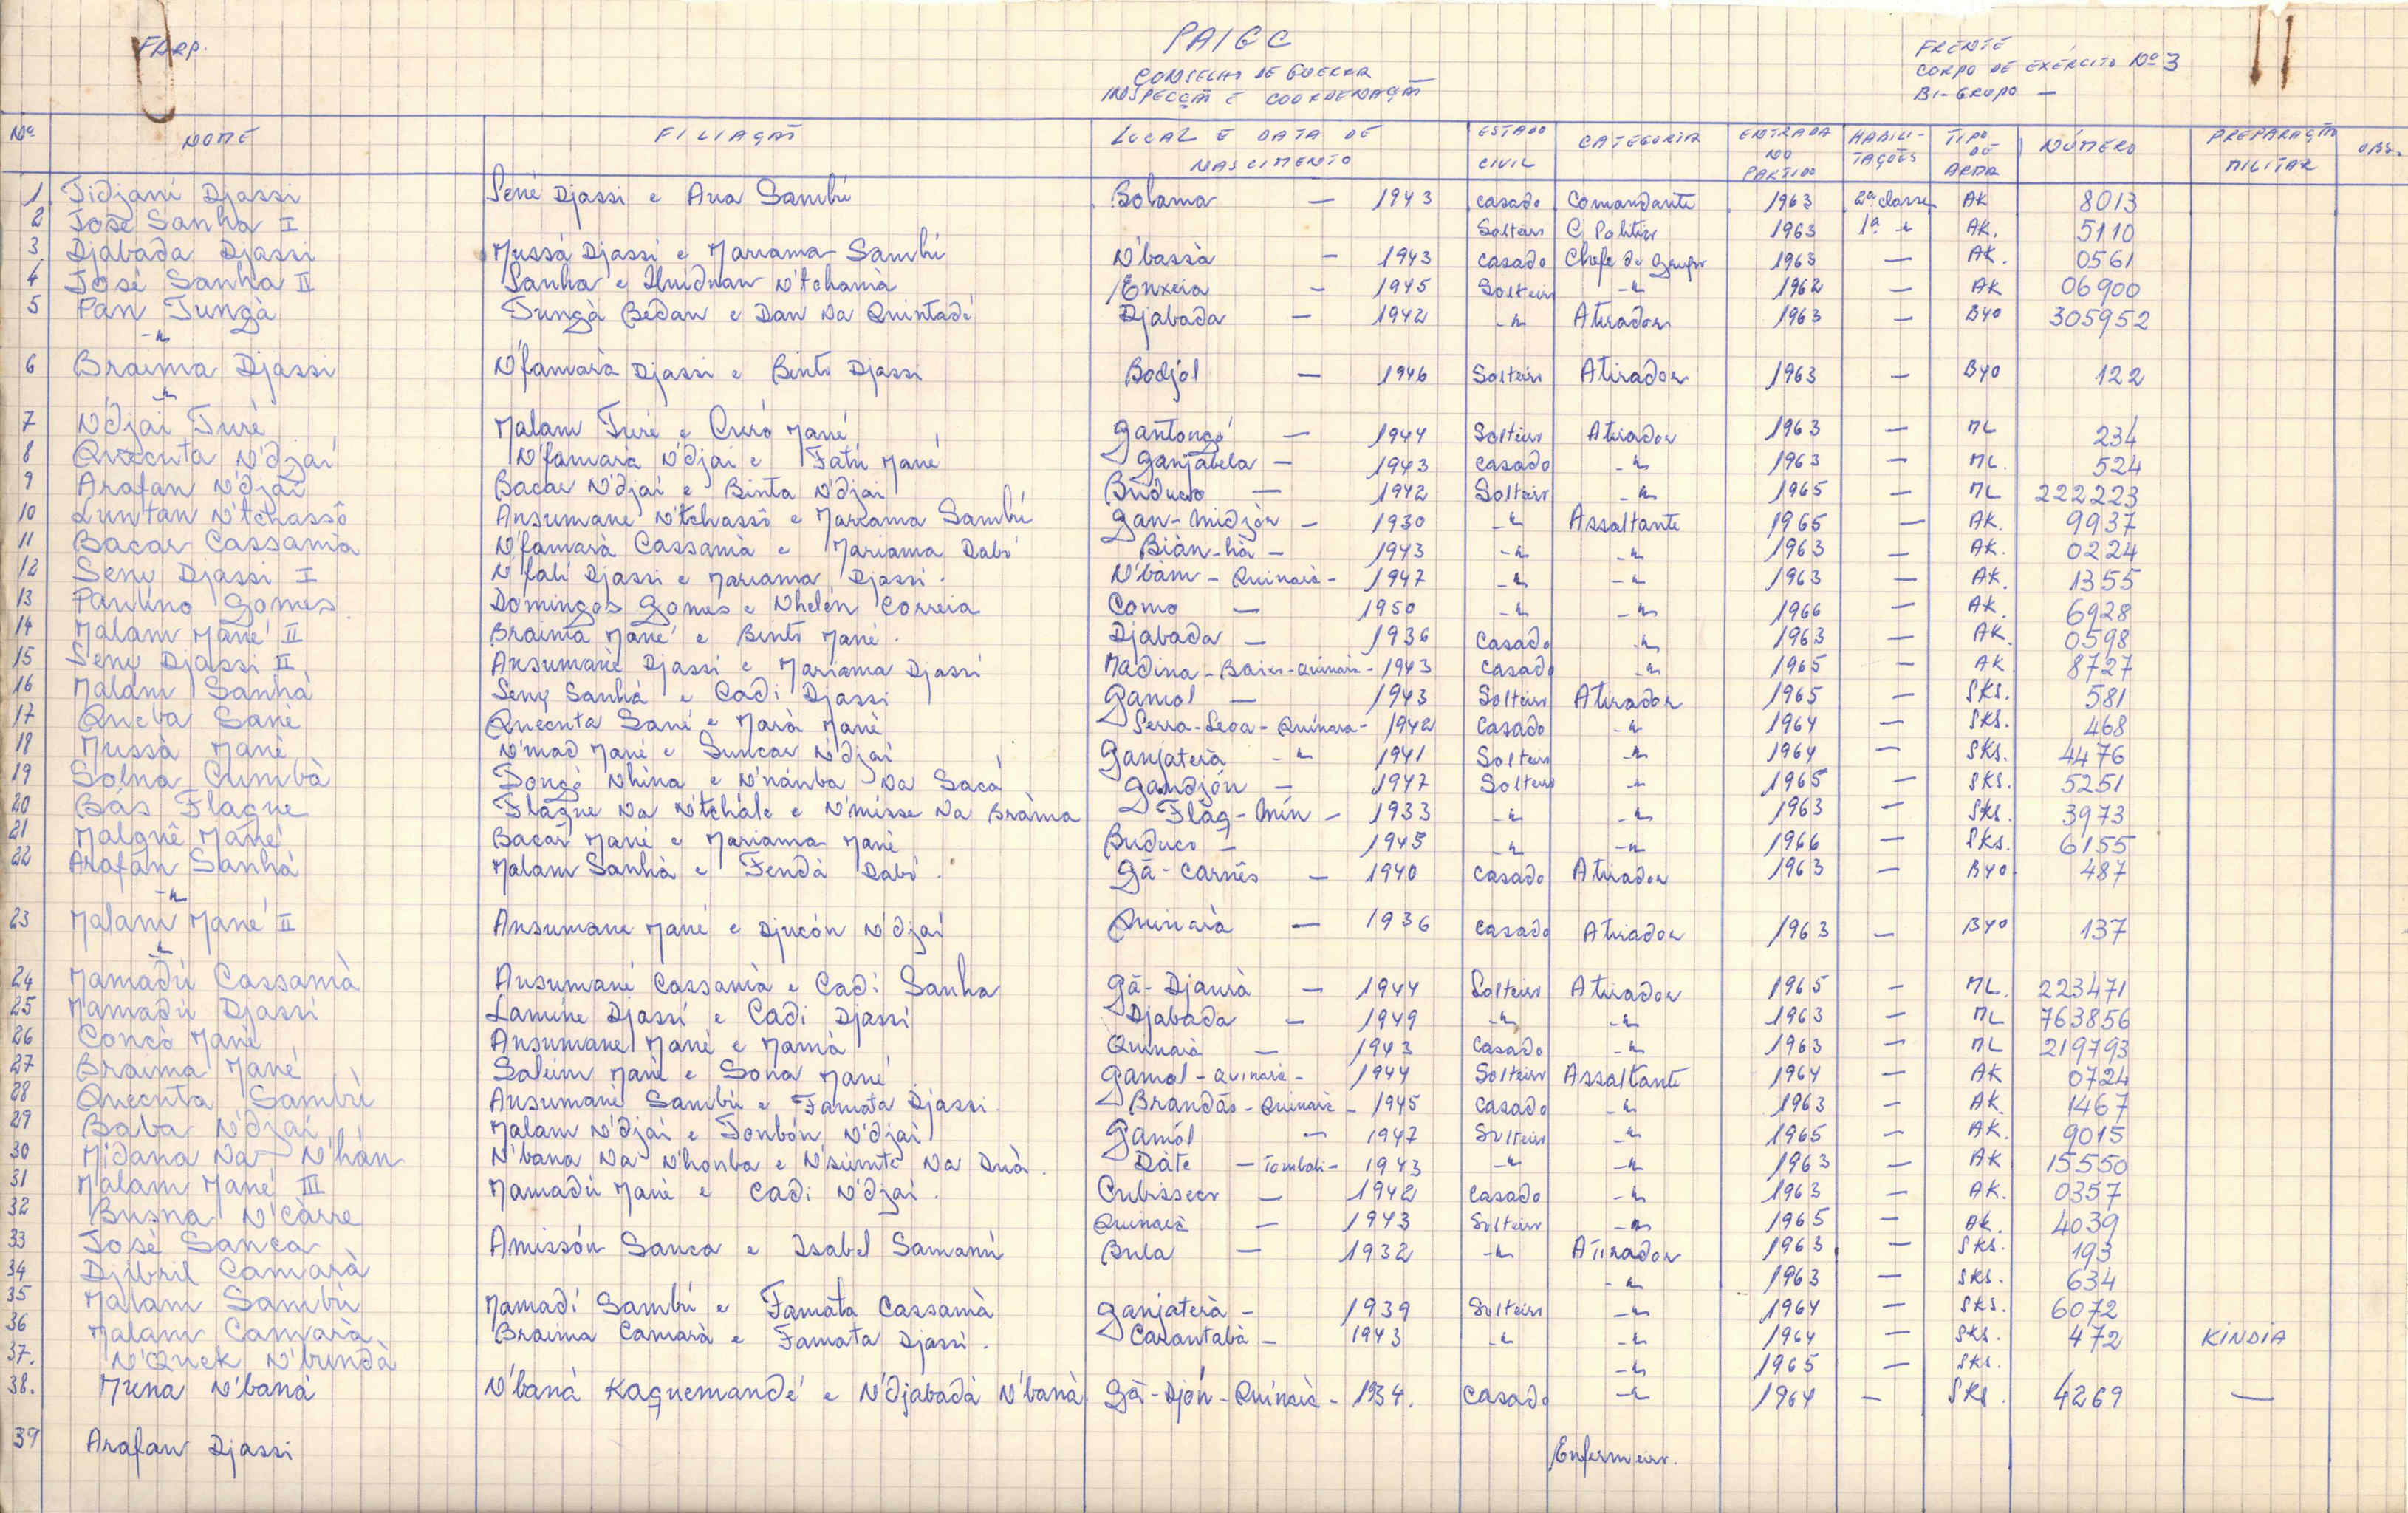 FARP.
PAIGC
CONSELHO DE GUERRA
INSPECÇÃO E COORDENAÇÃO
FRENTE
CORPO DE EXÉRCITO Nº 3
BI-GRUPO —
Nº NOME FILIAÇÃO LOCAL E DATA DE NASCIMENTO ESTADO CIVIL CATEGORIA ENTRADA NO PARTIDO HABILITAÇÕES TIPO DE ARMA NÚMERO PREPARAÇÃO MILITAR OBS.
1 Tidjani Djassi Sené Djassi e Ana Sambú Bolama — 1943 casado Comandante 1963 2ª classe AK 8013
2 José Sanha I Solteiro C. Politico 1963 1ª -"- AK. 5110
3 Djabada Djassi Mussá Djassi e Mariama Sambú N'bassà — 1943 casado Chefe de grupo 1963 — AK. 0561
4 José Sanha II Sanha e N'tchamà Enxeia — 1945 Solteiro -"- 1962 — AK 06900
5 Pan Tungà Tungà Bedan e Dan Na Quintadé Djabada — 1942 -"- Atirador 1963 — B40 305952
-"-
6 Braima Djassi N'famarà Djassi e Binto Djassi Bodjol — 1946 Solteiro Atirador 1963 — B40 122
-"-
7 N'djai Turé Malam Turé e Mané Gantongó — 1944 Solteiro Atirador 1963 — ML 234
8 Quecuta N'djai N'famarà N'djai e Fatú Mané Ganjabela — 1943 casado -"- 1963 — ML. 524
9 Arafan N'djai Bacar N'djai e Binta N'djai Buduco — 1942 Solteiro -"- 1965 — ML 222223
10 Luntan N'tchassô Ansumane N'tchassô e Mariama Sambú Gan-Midjòn — 1930 -"- Assaltante 1965 — AK. 9937
11 Bacar Cassamà N'famarà Cassamà e Mariama Dabó Biàn-hà — 1943 -"- -"- 1963 — AK. 0224
12 Senu Djassi I N'fali Djassi e Mariama Djassi. N'bàm - Quinarà - 1947 -"- -"- 1963 — AK. 1355
13 Paulino Gomes Domingos Gomes e Nhelén Correia Como — 1950 -"- -"- 1966 — AK. 6928
14 Malam Mané II Braima Mané e Binto Mané. Djabada — 1936 casado -"- 1963 — AK. 0598
15 Senu Djassi II Ansumane Djassi e Mariama Djassi Madina - Baixo - Quinarà - 1943 casado -"- 1965 — AK 8727
16 Malam Sanhà Senu Sanhá e Cadi Djassi Gamol — 1943 Solteiro Atirador 1965 — SKS. 581
17 Queba Sané Quecuta Sané e Marà Mané Serra-Leoa - Quinara - 1942 casado -"- 1964 — SKS. 468
18 Mussà Mané N'mad Mané e Suncar N'djai Ganjaterà -"- 1941 Solteiro -"- 1964 — SKS. 4476
19 Solna Cumbà Tongò Nhina e N'nánba Na Sacà Gandjón — 1947 Solteiro -"- 1965 — SKS. 5251
20 Bás Flagne Flagne Na N'tchále e N'misse Na Bràma Flàg-Min - 1933 -"- -"- 1963 — SKS. 3973
21 Malgnê Mané Bacar Mané e Mariama Mané Buduco — 1945 -"- -"- 1966 — SKS. 6155
22 Arafan Sanhà Malam Sanhà e Fendà Dabó. Gã-Carnês — 1940 casado Atirador 1963 — B40. 487
-"-
23 Malam Mané II Ansumane Mané e Djucón N'djai Quinarà — 1936 casado Atirador 1963 — B40 137
-"-
24 Mamadú Cassamà Ansumané Cassamà e Cadi Sanha Gã-Djaurà — 1944 Solteiro Atirador 1965 — ML. 223471
25 Mamadú Djassi Lamine Djassi e Cadi Djassi Djabada — 1949 -"- -"- 1963 — ML 763856
26 Concò Mané Ansumane Mané e Mamà Quinarà — 1943 casado -"- 1963 — ML 219793
27 Braima Mané Saleim Mané e Sona Mané Gamol - Quinarà - 1944 Solteiro Assaltante 1964 — AK 0724
28 Quecuta Sambú Ansumané Sambú e Famata Djassi. Brandão - Quinarà - 1945 casado -"- 1963 — AK. 1467
29 Baba N'djai Malam N'djai e Tonbón N'djai Gamól — 1947 Solteiro -"- 1965 — AK. 9015
30 Midana Na N'hàn N'bana Na N'honba e N'siúmte Na Duà. Dàte - Tombali - 1943 -"- -"- 1963 — AK 15550
31 Malam Mané III Mamadú Mané e Cadi N'djai. Cubisseco — 1942 casado -"- 1963 — AK. 0357
32 Busna N'càrre Quinarà — 1943 Solteiro -"- 1965 — AK. 4039
33 José Sanca Amissón Sanca e Isabel Samanú Bula — 1932 -"- Atirador 1963 — SKS. 193
34 Djibril Camarà -"- 1963 — SKS. 634
35 Malam Sambú Mamadi Sambú e Famata Cassamà Ganjaterà — 1939 Solteiro -"- 1964 — SKS. 6072
36 Malam Camarà Braima Camarà e Famata Djassi. Carantabà — 1943 -"- -"- 1964 — SKS. 472 KINDIA
37. N'Quek N'bundà -"- 1965 — SKS.
38. Muna N'baná N'baná Kaguemandé e N'djabadà N'banà. Gã-Djón - Quinarà - 1934. casado -"- 1964 — SKS. 4269 —
39 Arafan Djassi Enfermeiro.